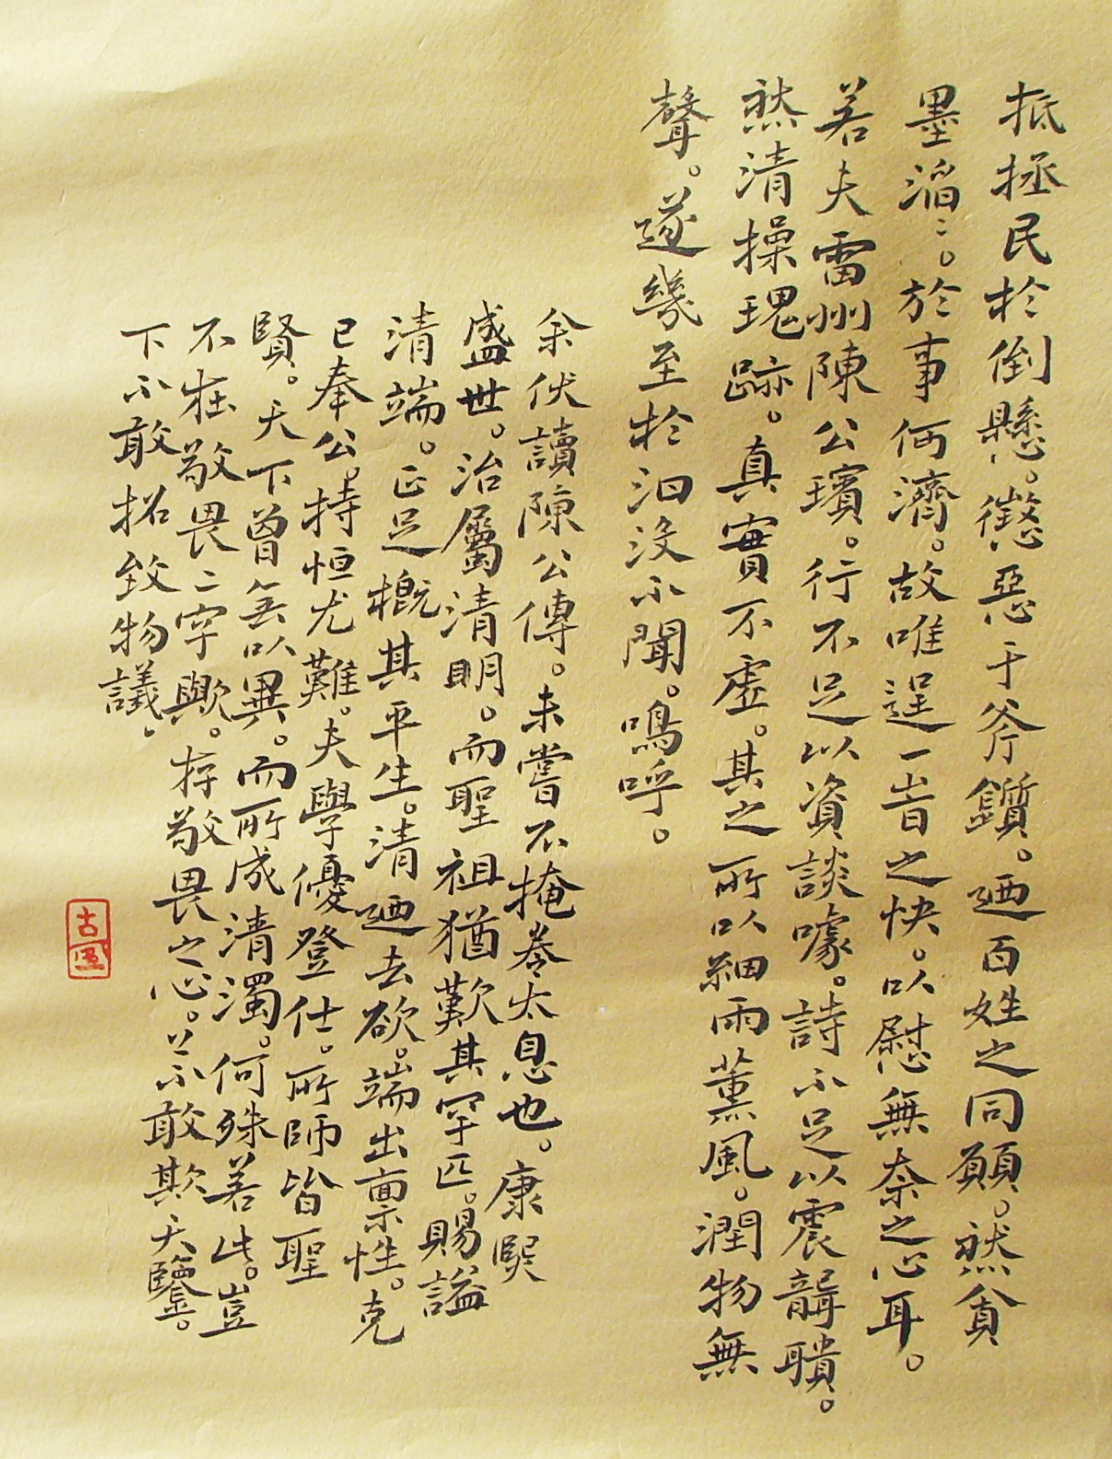 抵拯民於倒懸。懲惡于斧鑕。廼百姓之同願。然貪
墨滔〻。於事何濟。故唯逞一旹之快。以慰無奈之心耳。
若夫雷州陳公璸。行不足以資談噱。詩不足以震聾聵。
然清操瑰跡。真實不虛。其之所以細雨薰風。潤物無
聲。遂幾至於汩沒不聞。嗚呼。
余伏讀陳公傳。未嘗不掩卷太息也。康熙
盛世。治屬清明。而聖祖猶歎其罕匹。賜謚
清端。正足概其平生。清廼去欲。端出禀性。克
已奉公。持恒尤難。夫學優登仕。所師皆聖
賢。天下曾無以異。而所成清濁。何殊若此。豈
不在敬畏二字歟。存敬畏之心。上不敢欺天鑒。
下不敢招致物議。